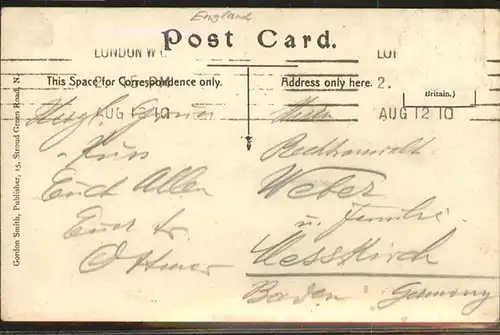 England
Post Card.
LONDON W
AUG 12 10
AUG 12 10
This Space for Correspondence only.
Address only here.
Britain.)
Gordon Smith, Publisher, 15, Stroud Green Road, N.
Herzl.
Euch Allen
Euer
Herrn
Rechtsanwalt
Weber
u. Familie.
Messkirch
Baden Germany